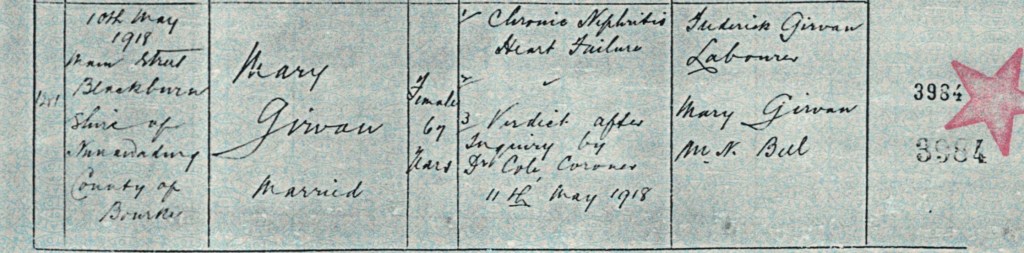 10th May
1918
Main Street
Blackburn
Shire of
Nunawading
County of
Bourke
Mary
Girvan
Married
Female
67
Years
1/ Chronic Nephritis
Heart Failure
2/ ✓
3 Verdict after
Inquiry by
Dr Cole, Coroner
11th May 1918
Frederick Girvan
Labourer
Mary Girvan
M. N. Bell
3984
3984